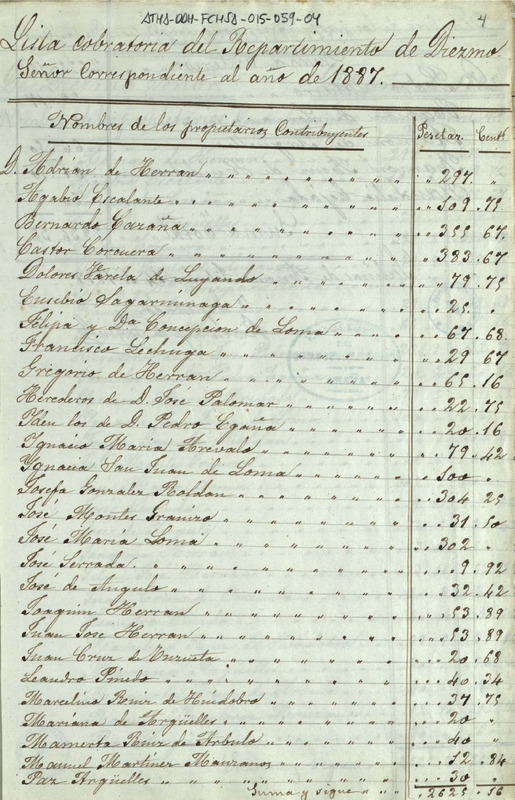 ATHA-DAH-FCHSA-015-059-04
4
Lista cobratoria del Repartimiento de Diezmo
Señor Correspondiente al año de 1887.
Nombres de los propietarios Contribuyentes Pesetas. Cents
D. Adrian de Herran 297. "
Agabio Escalante 109.75
Bernardo Cazaña 355 67.
Castor Corcuera 383.67
Dolores Varela de Luyando 79.75
Eusebio Sagarminaga 25. "
Felipa y Dª Concepcion de Loma 67.68.
Francisco Lechuga 29 67
Gregorio de Herran 65.16
Herederos de D. Jose Palomar 22.75
Yden los de D. Pedro Egaña 20.16
Ygnacio Maria Arevalo 79.42
Ygnacia San Juan de Loma 100 "
Josefa Gonzalez Roldan 304 25
José Montes Granizo 31.50
José Maria Loma 302 "
José Serrada. 9.92
José de Angulo 32.42
Joaquin Herran 53.89
Juan Jose Herran 53.89
Juan Cruz de Unzueta 20.68
Leandro Pinedo 40.34
Marcelino Ruiz de Huidobro 37.75
Mariana de Argüelles 20 "
Mamerta Ruiz de Arbulo 40 "
Manuel Martinez Manzanos 12.84
Paz Argüelles 30 "
Suma y sigue 2625.56